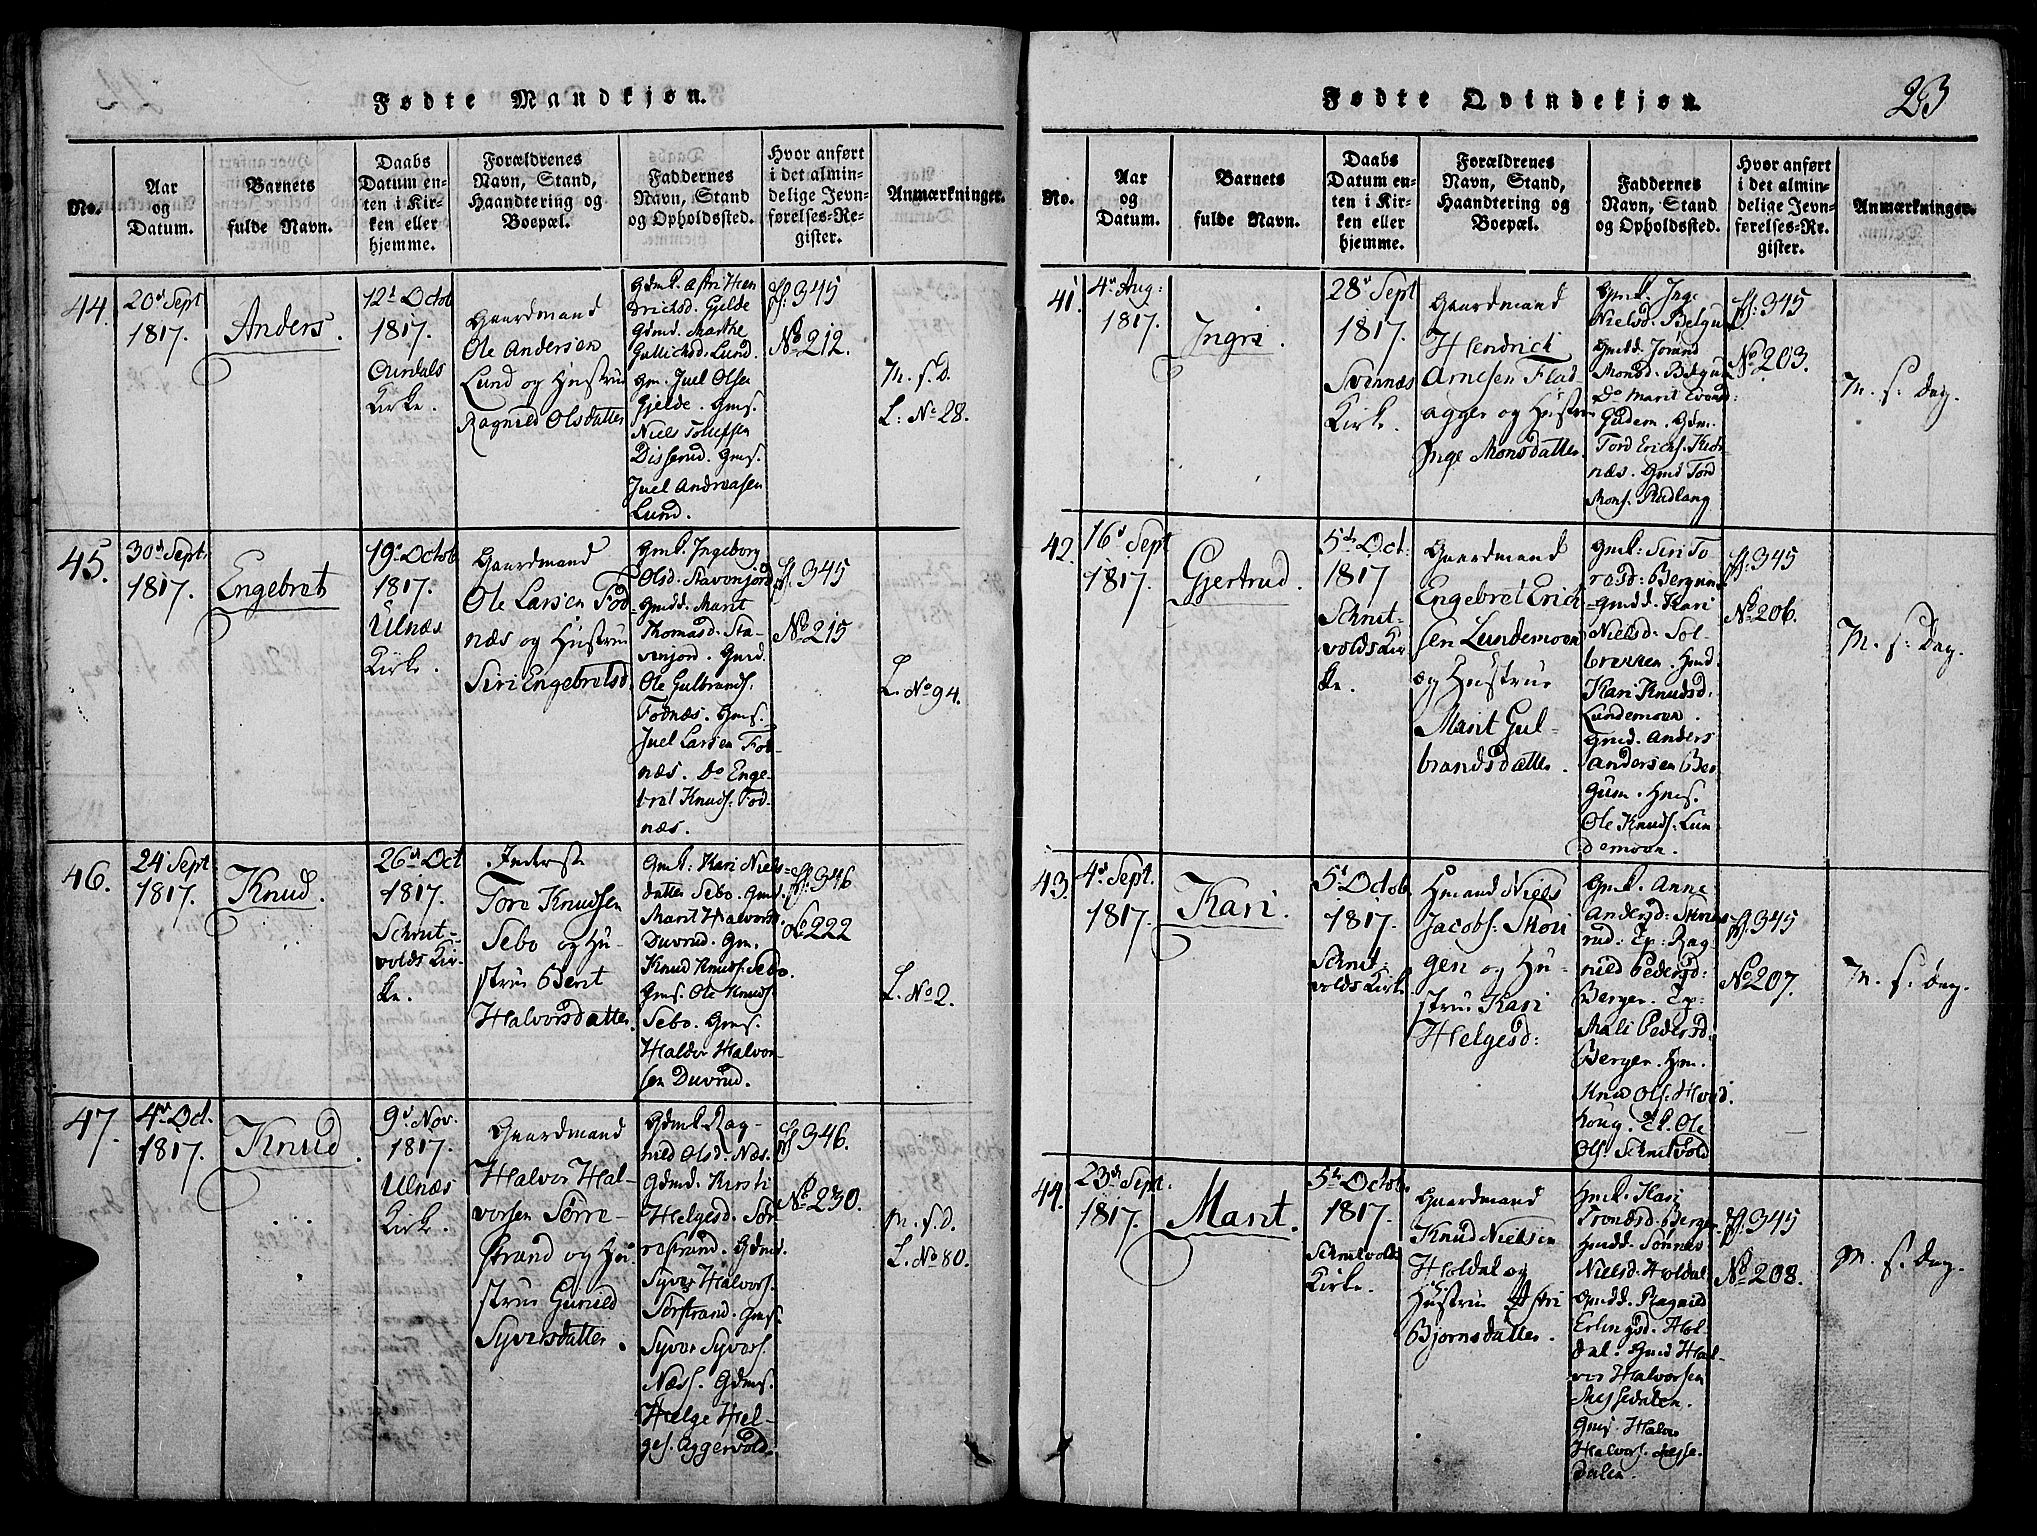 Fødte Mandkjøn.
No.
Aar
og
Datum.
Barnets
fulde Navn.
Daabs
Datum en-
ten i Kir-
ken eller
hjemme.
Forældrenes
Navn, Stand,
Haandtering og
Boepæl.
Faddernes
Navn, Stand
og Opholdssted.
Hvor anført
i det almin-
delige Jevn-
førelses-Re-
gister.
Anmærkninger.
44.
20d Sept
1817.
Anders.
12d Octob
1817.
Kirke.
Gaardmand
Ole Andersen
Lund og Hustrue
Ragnild Olsdatter
Gdmk. Astri Hen
dricksd. Gjelde
Gdmd. Marthe
Gullichsd. Lund.
Gm. Juel Olsen
Gjelde. Gms.
Niels
Disserud. Gms.
Juel Andreasen
Lund.
345
No 212.
M. s. D.
L. No 28.
45.
30d Sept.
1817.
Engebret
19d Octob
1817.
Ulnæs
Kirke.
Gaardmand
Ole Larsen Fod-
næs og Hustrue
Siri Engebretsd.
Gmk. Ingeborg
Olsd. Stavenjord
Gmdd. Marit
Thomasd. Sta-
venjord. Gmd.
Ole Gulbrands.
Fodnæs. Gms.
Juel Larsen Fod-
næs. Do Enge-
bret Knuds. Fod-
næs.
345
No 215
L. No 94.
46.
24 Sept
1817.
Knud.
26d Oct
1817.
Schrut-
volds Kir-
ke.
Inderst
Tore Knudsen
Sebo og Hu-
strue Berit
Halvorsdatter.
Gmk. Kari Niels-
datter Sebo. Gmd.
Marit Halvorsd.
Duvrud. Gm.
Knud Knuds. Sebo.
Gms. Ole Knuds.
Sebo. Gms.
Haldor Halvor-
sen Duvrud.
346
No 222
L. No 2.
47.
4d Oct.
1817.
Knud.
9d Nov.
1817.
Ulnæs
Kirke.
Gaardmand
Halvor Hal-
vorsen Sørre-
strand og Hu-
strue Gunild
Syversdatter.
Gdmk. Rag-
nild Olsd. Næs.
Gdmd. Kirsti
Helgesd. Sør-
restrand. Gdmd.
Syver Halvors.
Sørstrand. Gms.
Syver Syvers.
Næss. Gdms.
Helge Hel-
ges. Aggervold.
346.
No 230.
M. s. D.
L. No 80.
Fødte Qvindekjøn.
23
No.
Aar
og
Datum.
Barnets
fulde Navn.
Daabs
Datum en-
ten i Kir-
ken eller
hjemme.
Forældrenes
Navn, Stand,
Haandtering og
Boepæl.
Faddernes
Navn, Stand
og Opholdssted.
Hvor anført
i det almin-
delige Jevn-
førelses-Re-
gister.
Anmærkninger.
41.
4d Aug:
1817.
Ingri.
28d Sept
1817.
Svennæs
Kirke.
Gaardmand
Hendrich
Arnesen Flad-
agger og Hustrue
Inge Monsdatter.
Gmk. Inge
Nielsd. Belgum
Gmdd. Jorand
Monsd. Belgum
Do Marit Evend:
Gudem. Gdm.
Tord Ericks.
næs. Gmd Tord
Mons. Fladlang
345
No 203.
M. s. Dag.
42.
16d Sept
1817.
Gjertrud.
5d Oct:
1817
Schrut-
volds Kir
ke.
Gaardmand
Engebret Erich
sen Lundemoen
og Hustrue
Marit Gul-
brandsdatter.
Gmk: Siri To
resd: Bergum
Gmdd. Kari
Nielsd: Sol-
brekken. Hmd.
Kari Knudsd.
Lundemoen.
Gmd. Anders
Andersen Ber-
gum. Hms.
Ole Knuds. Lun
demoen.
345
No 206.
M. s. Dag.
43.
4d Sept.
1817.
Kari.
5d Octob
1817.
Schrut-
volds Kirke
Hmand Niels
Jacobs: Skou
gen og Hu-
strue Kari
Helgesd:
Gmk. Anne
Andersd:
rud: Tp: Rag-
nild Pedersd:
Berger. Tp:
Mali Pedersd:
Berger. Hm.
Knud Ols.
houg. Tk. Ole
Ols. Schrutvold
345
No 207.
M. s. Dag.
44.
23d Sept.
1817.
Marit.
5d Octob.
1817.
Schrutvolds
Kirke.
Gaardmand
Knud Nielsen
Holdal og
Hustrue Astri
Bjørnsdatter.
Hmk. Kari
Trondsd: Berger
Hmdd. Sønnev
Nielsd: Holdal
Gmdd. Ragnild
Erlingsd: Hol-
dal. Gmd Hal-
vor Halvorsen
Gms. Halvor
Halvors.
dalen.
345
No 208.
M. s. Dag.